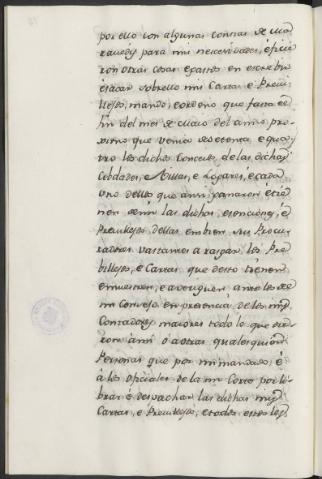 por ello con algunas contias de ma
ravedis para mis necesidades, é ficie
ron otras cosas é gastos en escrebir
é sacar sobrello mis Cartas é Previ
llejos, mando, é ordeno que fasta el
fin del mes de Marzo del año pro
ximo que verna de setenta, e qua
tro los dichos Concejos, de las dichas
Cibdades, é Villas, é Logares, é cada
uno dellos que ansi ganaron é tie
nen de mi las dichas esenciones, é
Previllejos dellas embien sus Procu
radores bastantes a                los Pre
billejos, é Cartas que desto tienen
é muestren, e averiguen ante los de
mi Consejo en presencia de los mis
Contadores mayores todo lo que die
ron á mi o a otras qualesquier
Personas que por mi mandado, é
á los oficiales de la mi Corte por li
brar é despachar las dichas mis
Cartas, e Previllejos, e todos estos los